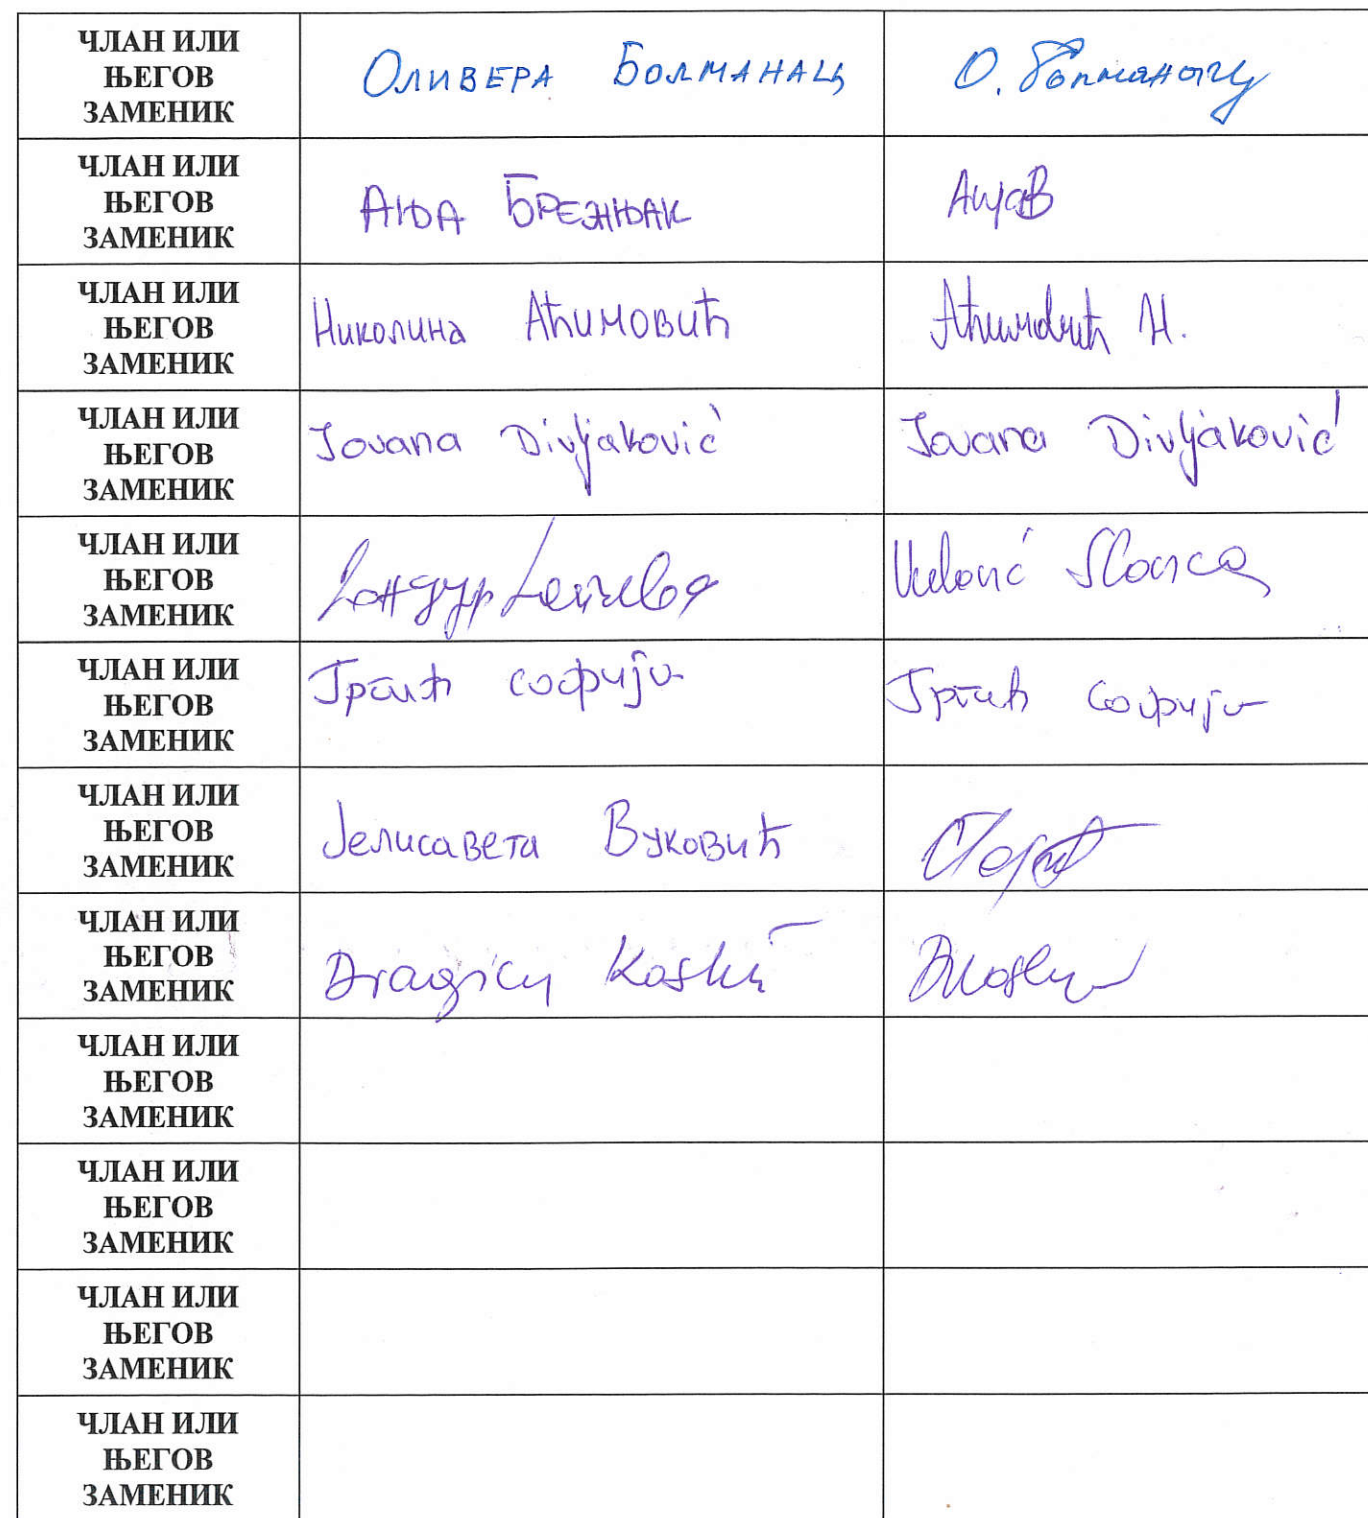 ЧЛАН ИЛИ
ЊЕГОВ
ЗАМЕНИК
ОЛИВЕРА БОЛМАНАЦ
О. Болманац
ЧЛАН ИЛИ
ЊЕГОВ
ЗАМЕНИК
АЊА БРЕЖЊАК
АњаБ
ЧЛАН ИЛИ
ЊЕГОВ
ЗАМЕНИК
Николина Аћимовић
Аћимовић Н.
ЧЛАН ИЛИ
ЊЕГОВ
ЗАМЕНИК
Jovana Divljaković
Jovana Divljaković
ЧЛАН ИЛИ
ЊЕГОВ
ЗАМЕНИК
ЧЛАН ИЛИ
ЊЕГОВ
ЗАМЕНИК
софија
софија
ЧЛАН ИЛИ
ЊЕГОВ
ЗАМЕНИК
Јелисавета Вуковић
ЧЛАН ИЛИ
ЊЕГОВ
ЗАМЕНИК
Dragica
ЧЛАН ИЛИ
ЊЕГОВ
ЗАМЕНИК
ЧЛАН ИЛИ
ЊЕГОВ
ЗАМЕНИК
ЧЛАН ИЛИ
ЊЕГОВ
ЗАМЕНИК
ЧЛАН ИЛИ
ЊЕГОВ
ЗАМЕНИК